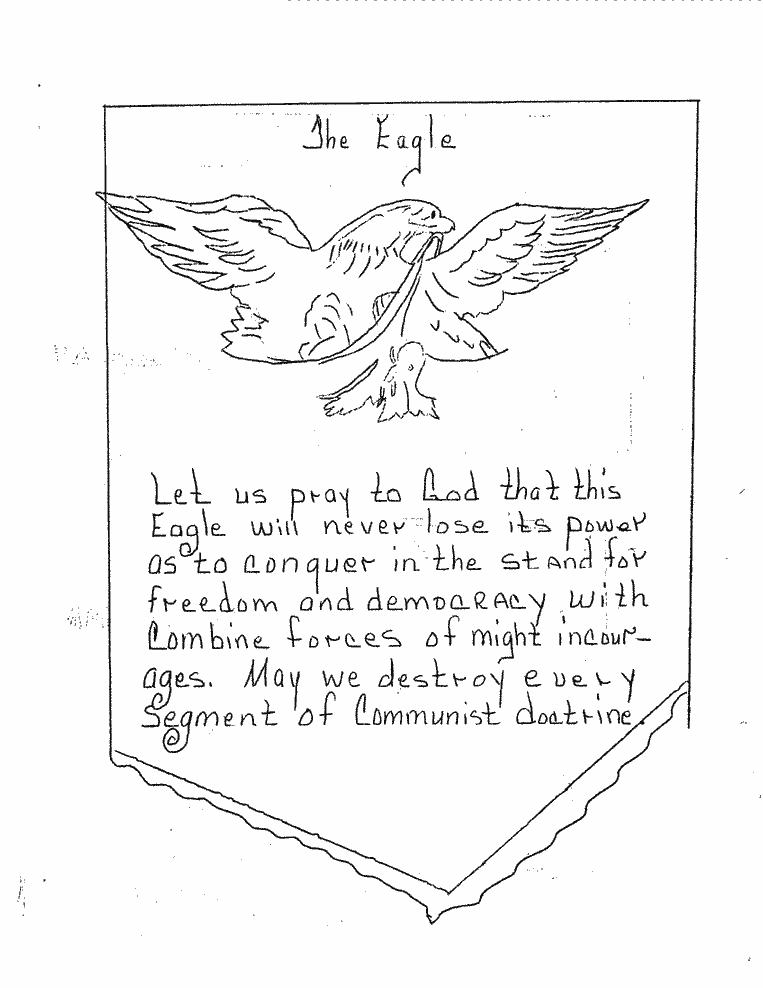 The Eagle
Let us pray to God that this
Eagle will never lose its power
as to conquer in the stAnd for
freedom and demOCRACy with
Combine forces of might incour-
ages. May we destroy every
Segment of Communist doctrine